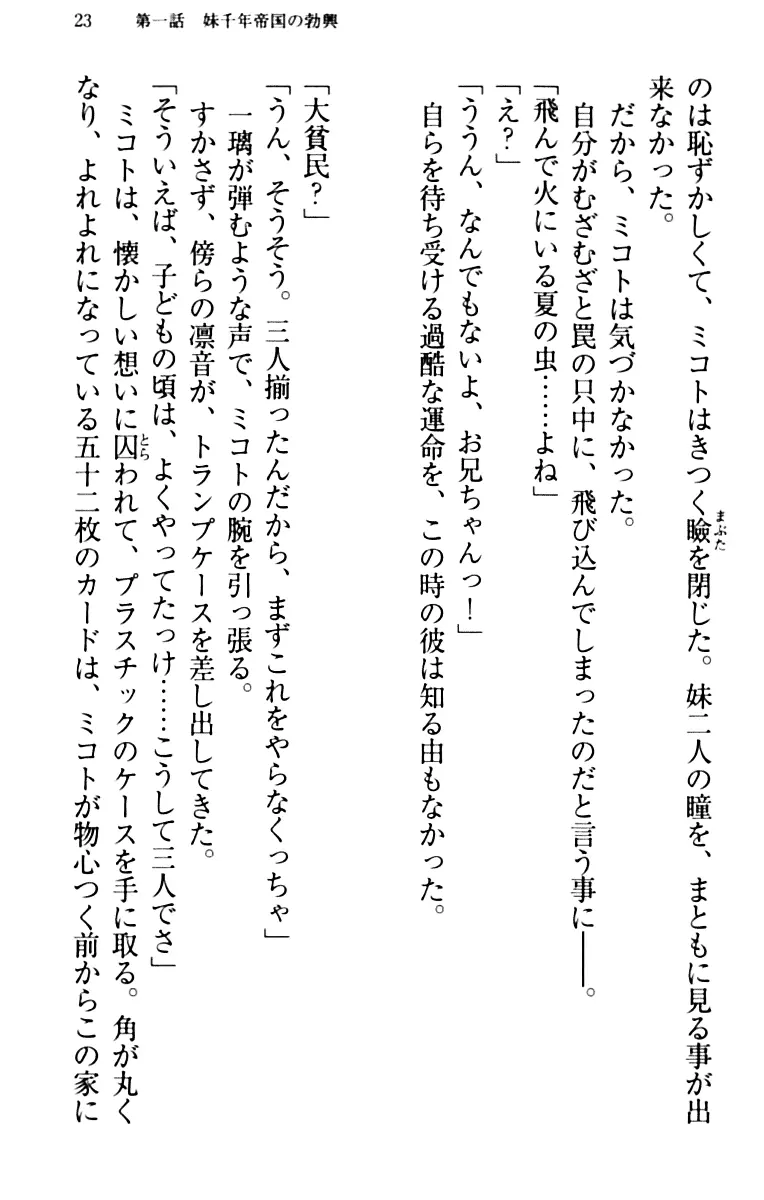 23　第一話　妹千年帝国の勃興
のは恥ずかしくて、ミコトはきつく瞼を閉じた。妹二人の瞳を、まともに見る事が出
まぶた
来なかった。
だから、ミコトは気づかなかった。
自分がむざむざと罠の只中に、飛び込んでしまったのだと言う事に――。
「飛んで火にいる夏の虫……よね」
「え？」
「ううん、なんでもないよ、お兄ちゃんっ！」
自らを待ち受ける過酷な運命を、この時の彼は知る由もなかった。
「大貧民？」
「うん、そうそう。三人揃ったんだから、まずこれをやらなくっちゃ」
一璃が弾むような声で、ミコトの腕を引っ張る。
すかさず、傍らの凛音が、トランプケースを差し出してきた。
「そういえば、子どもの頃は、よくやってたっけ……こうして三人でさ」
ミコトは、懐かしい想いに囚われて、プラスチックのケースを手に取る。角が丸く
とら
なり、よれよれになっている五十二枚のカードは、ミコトが物心つく前からこの家に